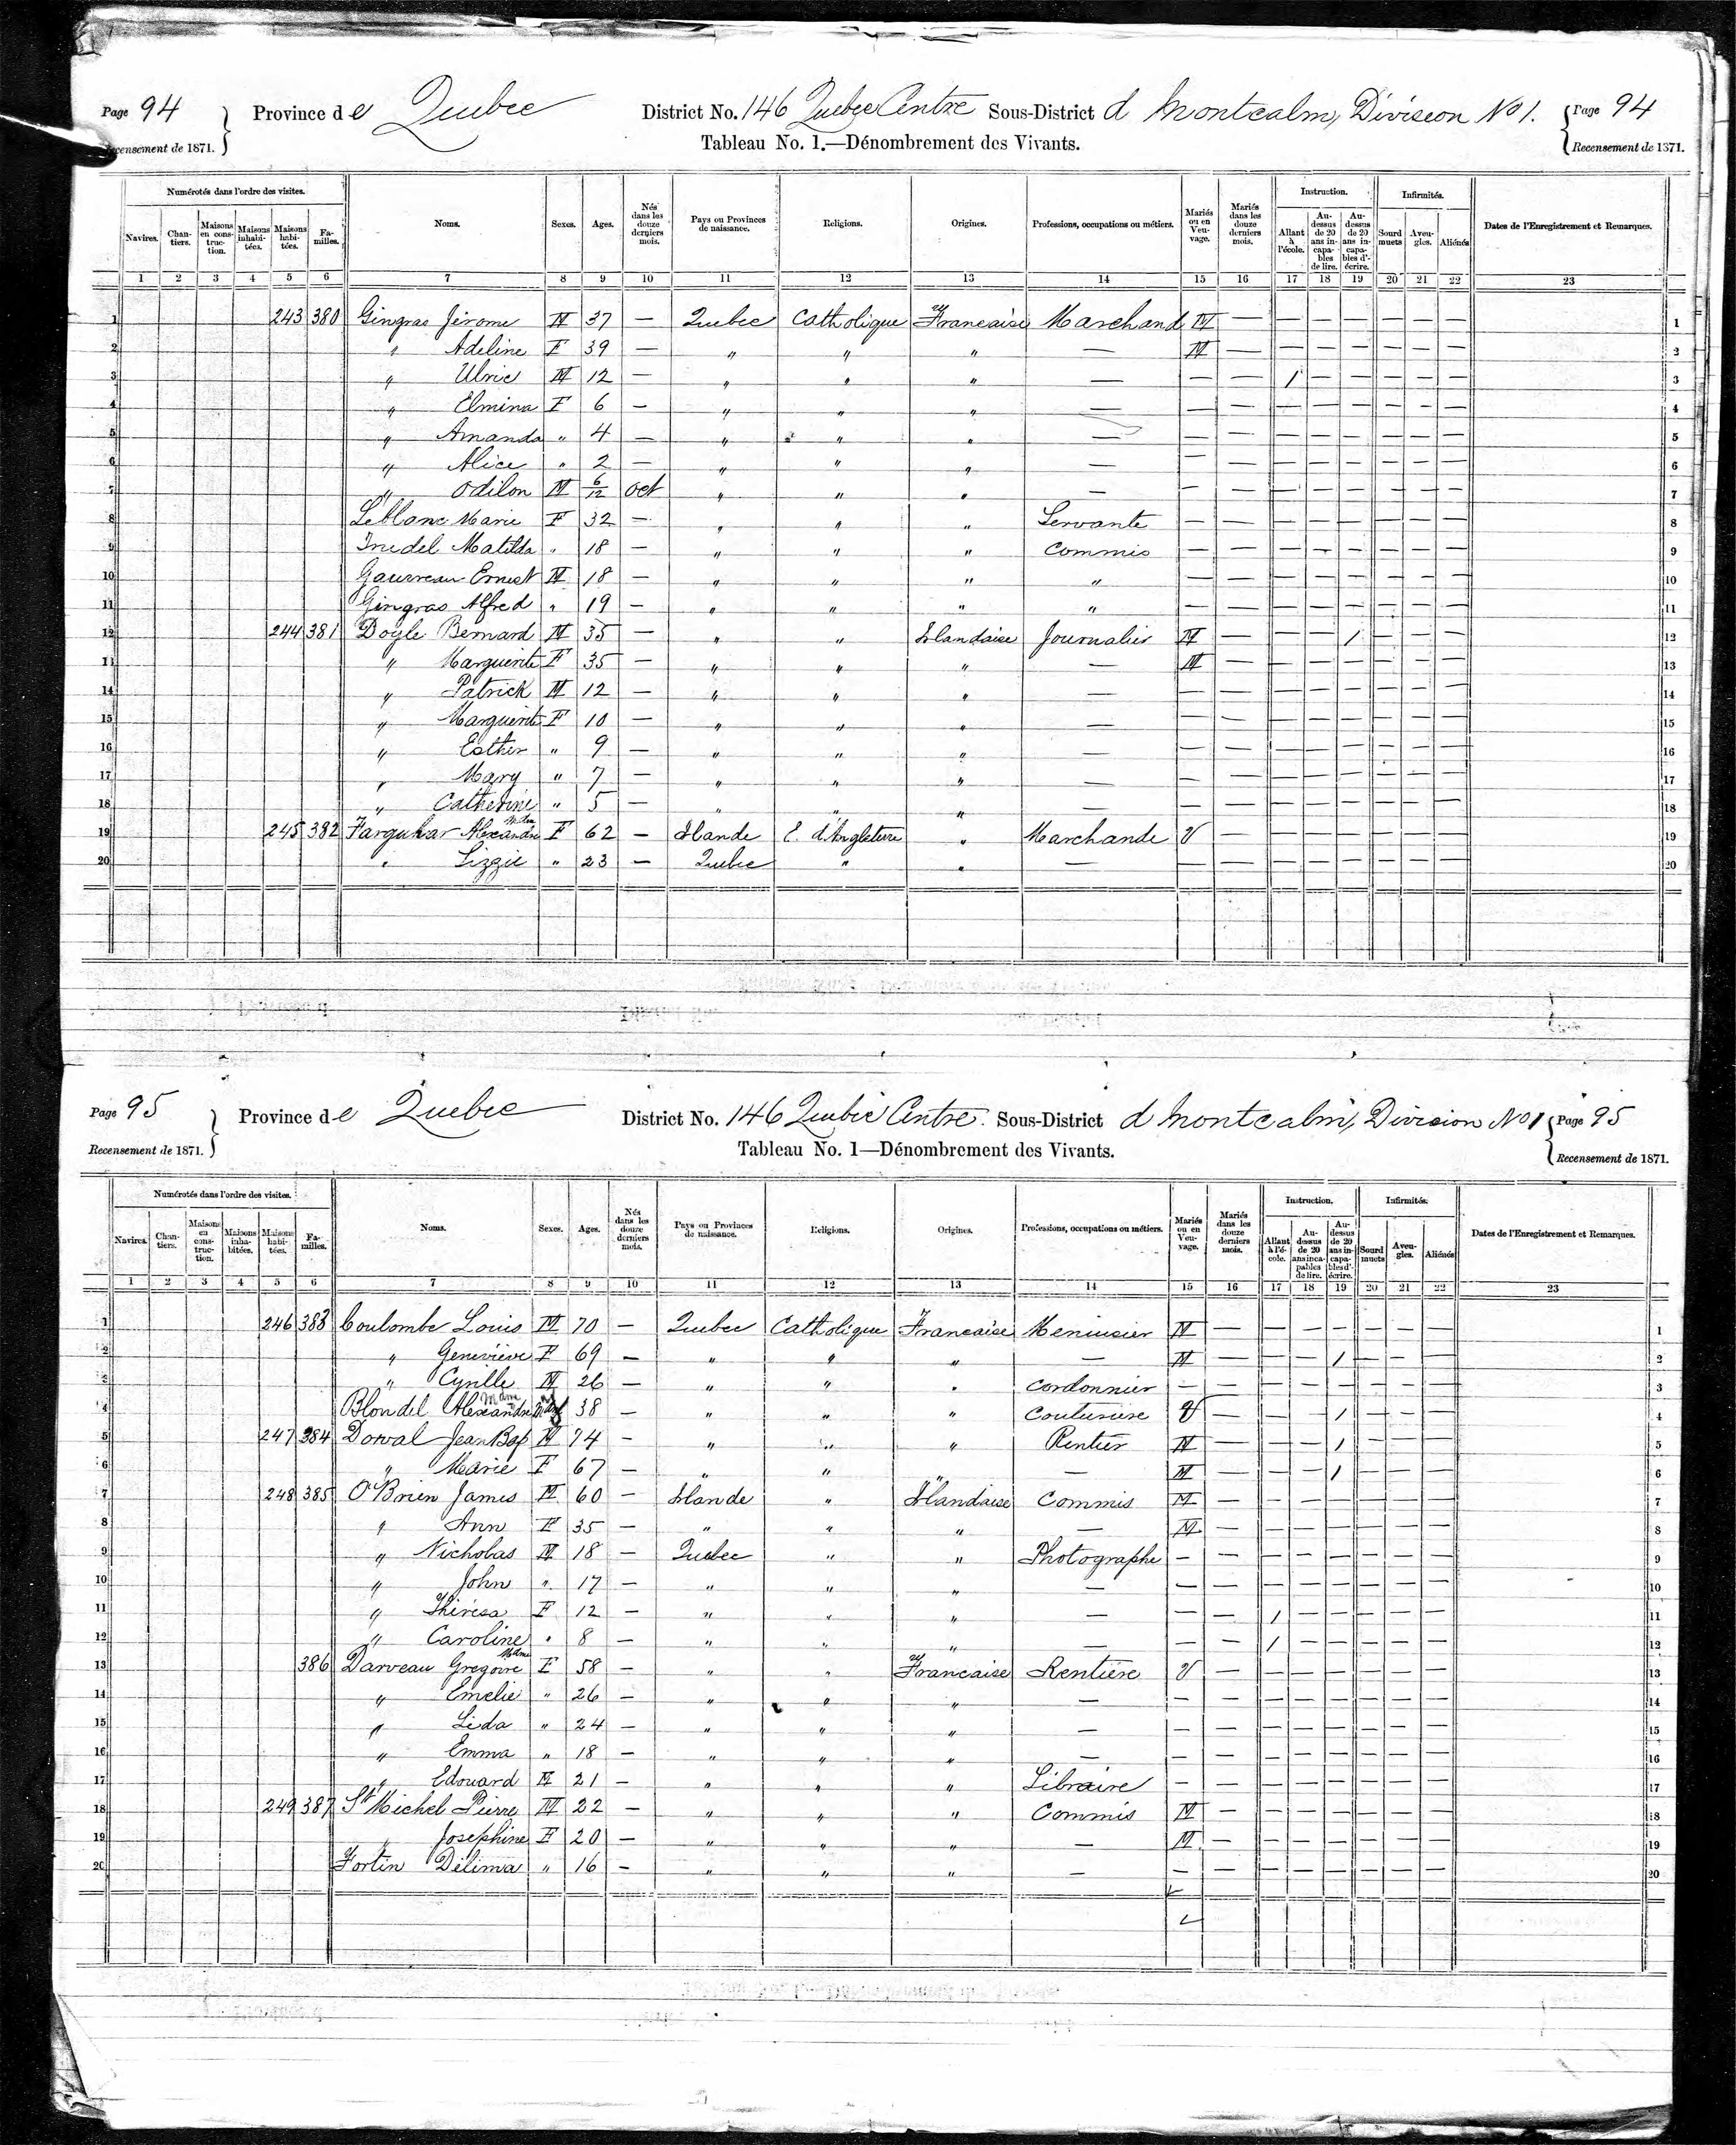 Page 94 Province de Quebec District No. 146 Quebec Centre Sous-District d Montcalm, Division No 1. Page 94
Recensement de 1871. Tableau No. 1.—Dénombrement des Vivants. Recensement de 1871.
Numérotés dans l'ordre des visites. Navires. Chantiers. Maisons en construction. Maisons inhabitées. Maisons habitées. Familles. Noms. Sexes. Ages. Nés dans les douze derniers mois. Pays ou Provinces de naissance. Religions. Origines. Professions, occupations ou métiers. Mariés ou en Veuvage. Mariés dans les douze derniers mois. Instruction. Allant à l'école. Au-dessus de 20 ans incapables de lire. Au-dessus de 20 ans incapables d'écrire. Infirmités. Sourd muets Aveugles. Aliénés Dates de l'Enregistrement et Remarques.
1 2 3 4 5 6 7 8 9 10 11 12 13 14 15 16 17 18 19 20 21 22 23
1 243 380 Gingras Jérome M 37 — Quebec Catholique Francaise Marchand M — — — — — — — 1
2 " Adeline F 39 — " " " — M — — — — — — — 2
3 " Ulric M 12 — " " " — — — 1 — — — — — 3
4 " Elmina F 6 — " " " — — — — — — — — — 4
5 " Amanda " 4 — " " " — — — — — — — — — 5
6 " Alice " 2 — " " " — — — — — — — — — 6
7 " Odilon M 6/12 Oct " " " — — — — — — — — — 7
8 Leblanc Marie F 32 — " " " Servante — — — — — — — — 8
9 Trudel Matilda " 18 — " " " Commis — — — — — — — — 9
10 Gauvreau Ernest M 18 — " " " " — — — — — — — — 10
11 Gingras Alfred " 19 — " " " " — — — — — — — — 11
12 244 381 Doyle Bernard M 35 — " " Irlandaise Journalier M — — — 1 — — — 12
11 " Marguerite F 35 — " " " — M — — — — — — — 13
14 " Patrick M 12 — " " " — — — — — — — — — 14
15 " Marguerite F 10 — " " " — — — — — — — — — 15
16 " Esther " 9 — " " " — — — — — — — — — 16
17 " Mary " 7 — " " " — — — — — — — — — 17
18 " Catherine " 5 — " " " — — — — — — — — — 18
19 245 382 Farquhar Alexandre Mdm F 62 — Irlande E. d'Angleterre " Marchande V — — — — — — — 19
20 " Lizzie " 23 — Quebec " " — — — — — — — — — 20
Page 95 Province de Quebec District No. 146 Quebec Centre. Sous-District d Montcalm, Division No 1 Page 95
Recensement de 1871. Tableau No. 1—Dénombrement des Vivants. Recensement de 1871.
Numérotés dans l'ordre des visites. Navires. Chantiers. Maisons en construction. Maisons inhabitées. Maisons habitées. Familles. Noms. Sexes. Ages. Nés dans les douze derniers mois. Pays ou Provinces de naissance. Religions. Origines. Professions, occupations ou métiers. Mariés ou en Veuvage. Mariés dans les douze derniers mois. Instruction. Allant à l'école. Au-dessus de 20 ans incapables de lire. Au-dessus de 20 ans incapables d'écrire. Infirmités. Sourd muets Aveugles. Aliénés Dates de l'Enregistrement et Remarques.
1 2 3 4 5 6 7 8 9 10 11 12 13 14 15 16 17 18 19 20 21 22 23
1 246 383 Coulombe Louis M 70 — Quebec Catholique Francaise Menuisier M — — — — — — — 1
2 " Geneviève F 69 — " " " — M — — — 1 — — — 2
3 " Cyrille M 26 — " " " Cordonnier — — — — — — — — 3
4 Blondel Alexandre Mdm F 38 — " " " Couturière V — — — 1 — — — 4
5 247 384 Dorval Jean Bap M 74 — " " " Rentier M — — — 1 — — — 5
6 " Marie F 67 — " " " — M — — — 1 — — — 6
7 248 385 O'Brien James M 60 — Irlande " Irlandaise Commis M — — — — — — — 7
8 " Ann F 35 — " " " — M — — — — — — — 8
9 " Nicholas M 18 — Quebec " " Photographe — — — — — — — — 9
10 " John " 17 — " " " — — — — — — — — — 10
11 " Thérésa F 12 — " " " — — — 1 — — — — — 11
12 " Caroline " 8 — " " " — — — 1 — — — — — 12
13 386 Darveau Gregoire Mdme F 58 — " " Francaise Rentière V — — — — — — — 13
14 " Emelie " 26 — " " " — — — — — — — — — 14
15 " Léda " 24 — " " " — — — — — — — — — 15
16 " Emma " 18 — " " " — — — — — — — — — 16
17 " Edouard M 21 — " " " Libraire — — — — — — — — 17
18 249 387 St Michel Pierre M 22 — " " " Commis M — — — — — — — 18
19 " Josephine F 20 — " " " — M — — — — — — — 19
20 Fortin Délima " 16 — " " " — — — — — — — — — 20